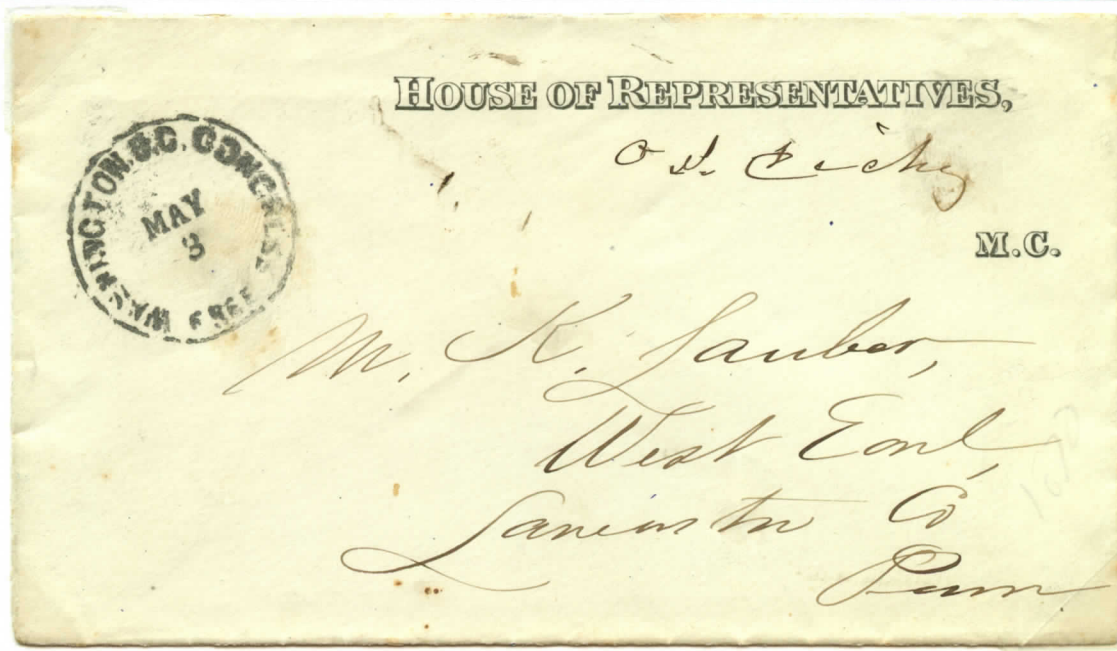 HOUSE OF REPRESENTATIVES,
O. J. Dickey
M.C.
WASHINGTON. D.C. CONGRESS FREE
MAY
3
M. K. Lauber,
West Earl,
Lancaster Co
Penn